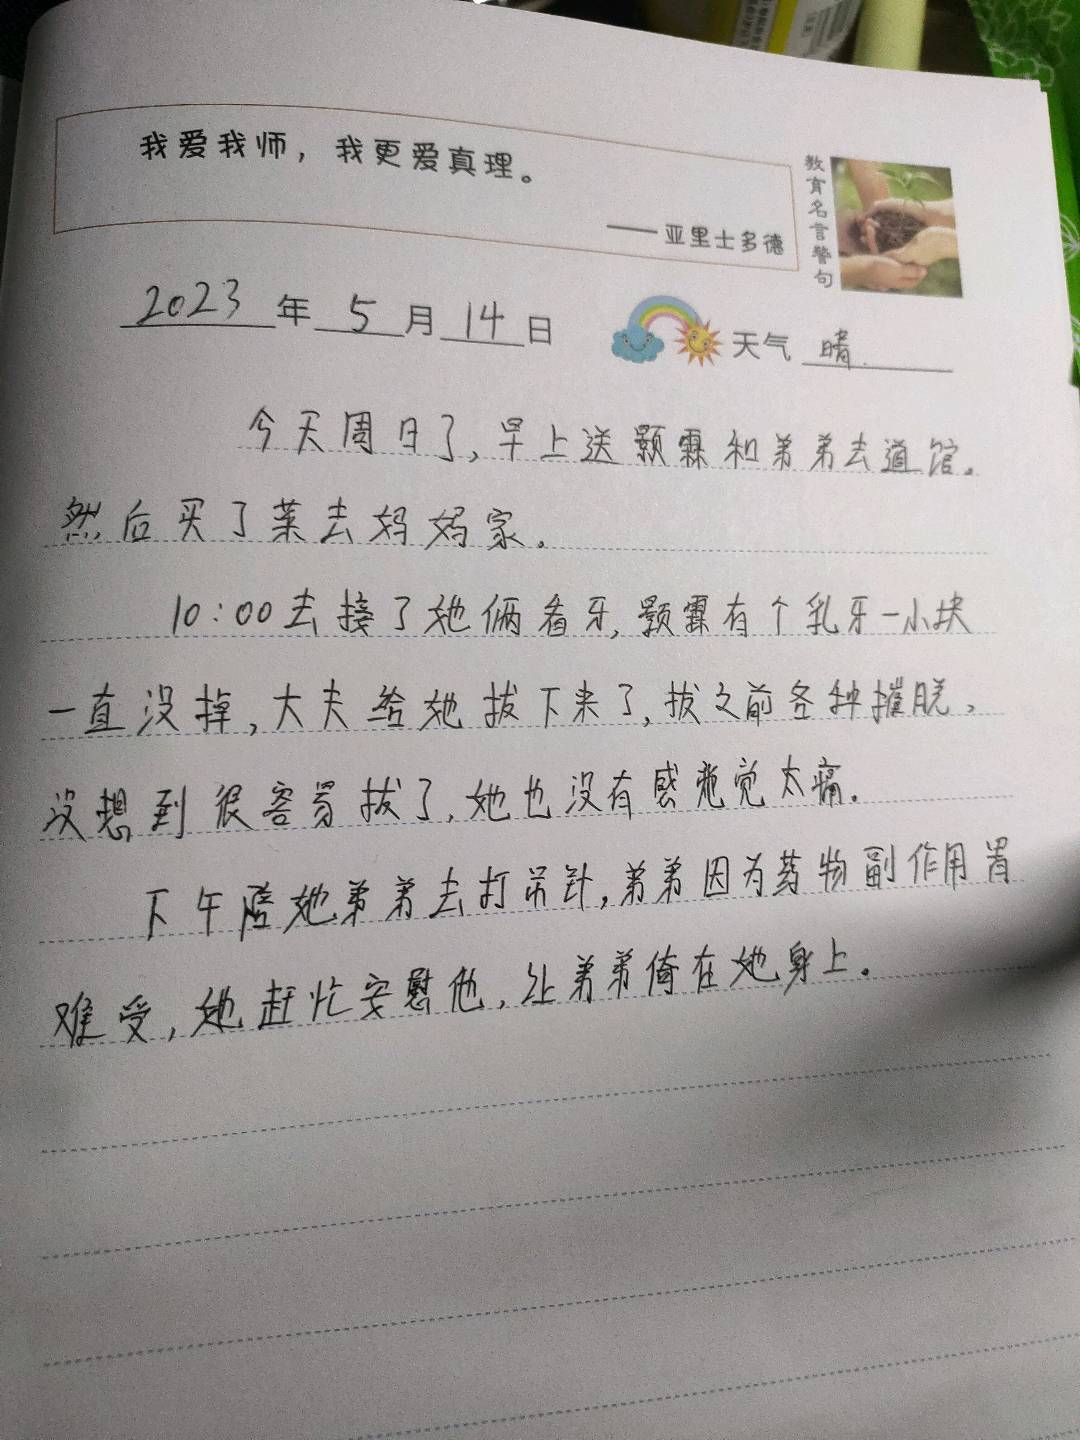 我爱我师，我更爱真理。
——亚里士多德
教育名言警句
2023年5月14日
天气 晴.
今天周日了,早上送颢霖和弟弟去道馆。
然后买了菜去妈妈家。
10:00去接了她俩看牙,颢霖有个乳牙一小块
一直没掉,大夫给她拔下来了,拔之前各种摧脱,
没想到很容易拔了,她也没有感觉太痛.
下午陪她弟弟去打吊针,弟弟因为药物副作用胃
难受,她赶忙安慰他,让弟弟倚在她身上。